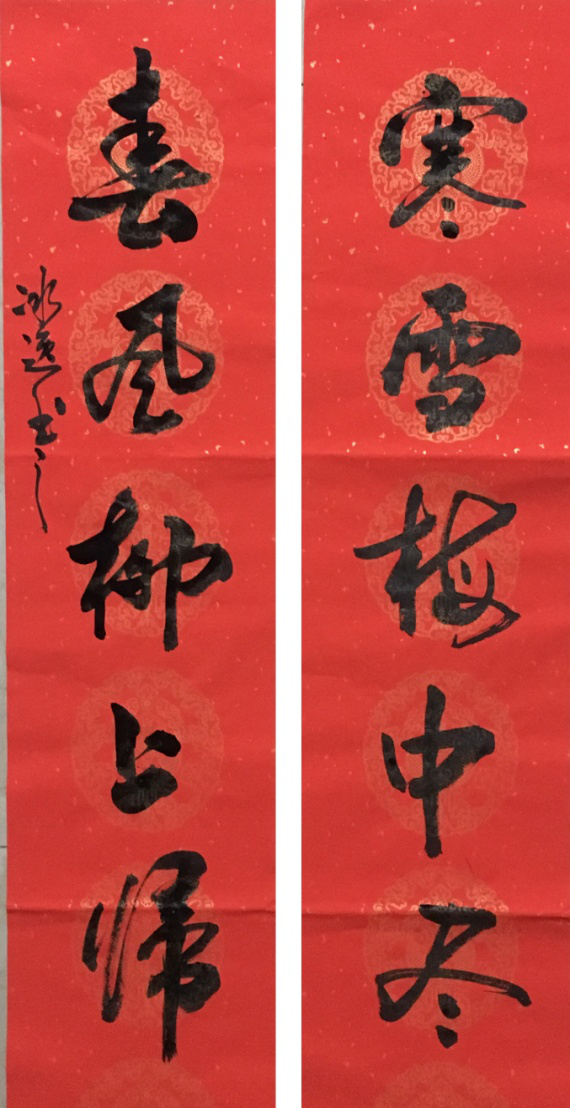 寒雪梅中尽
春风柳上归
冰逸书